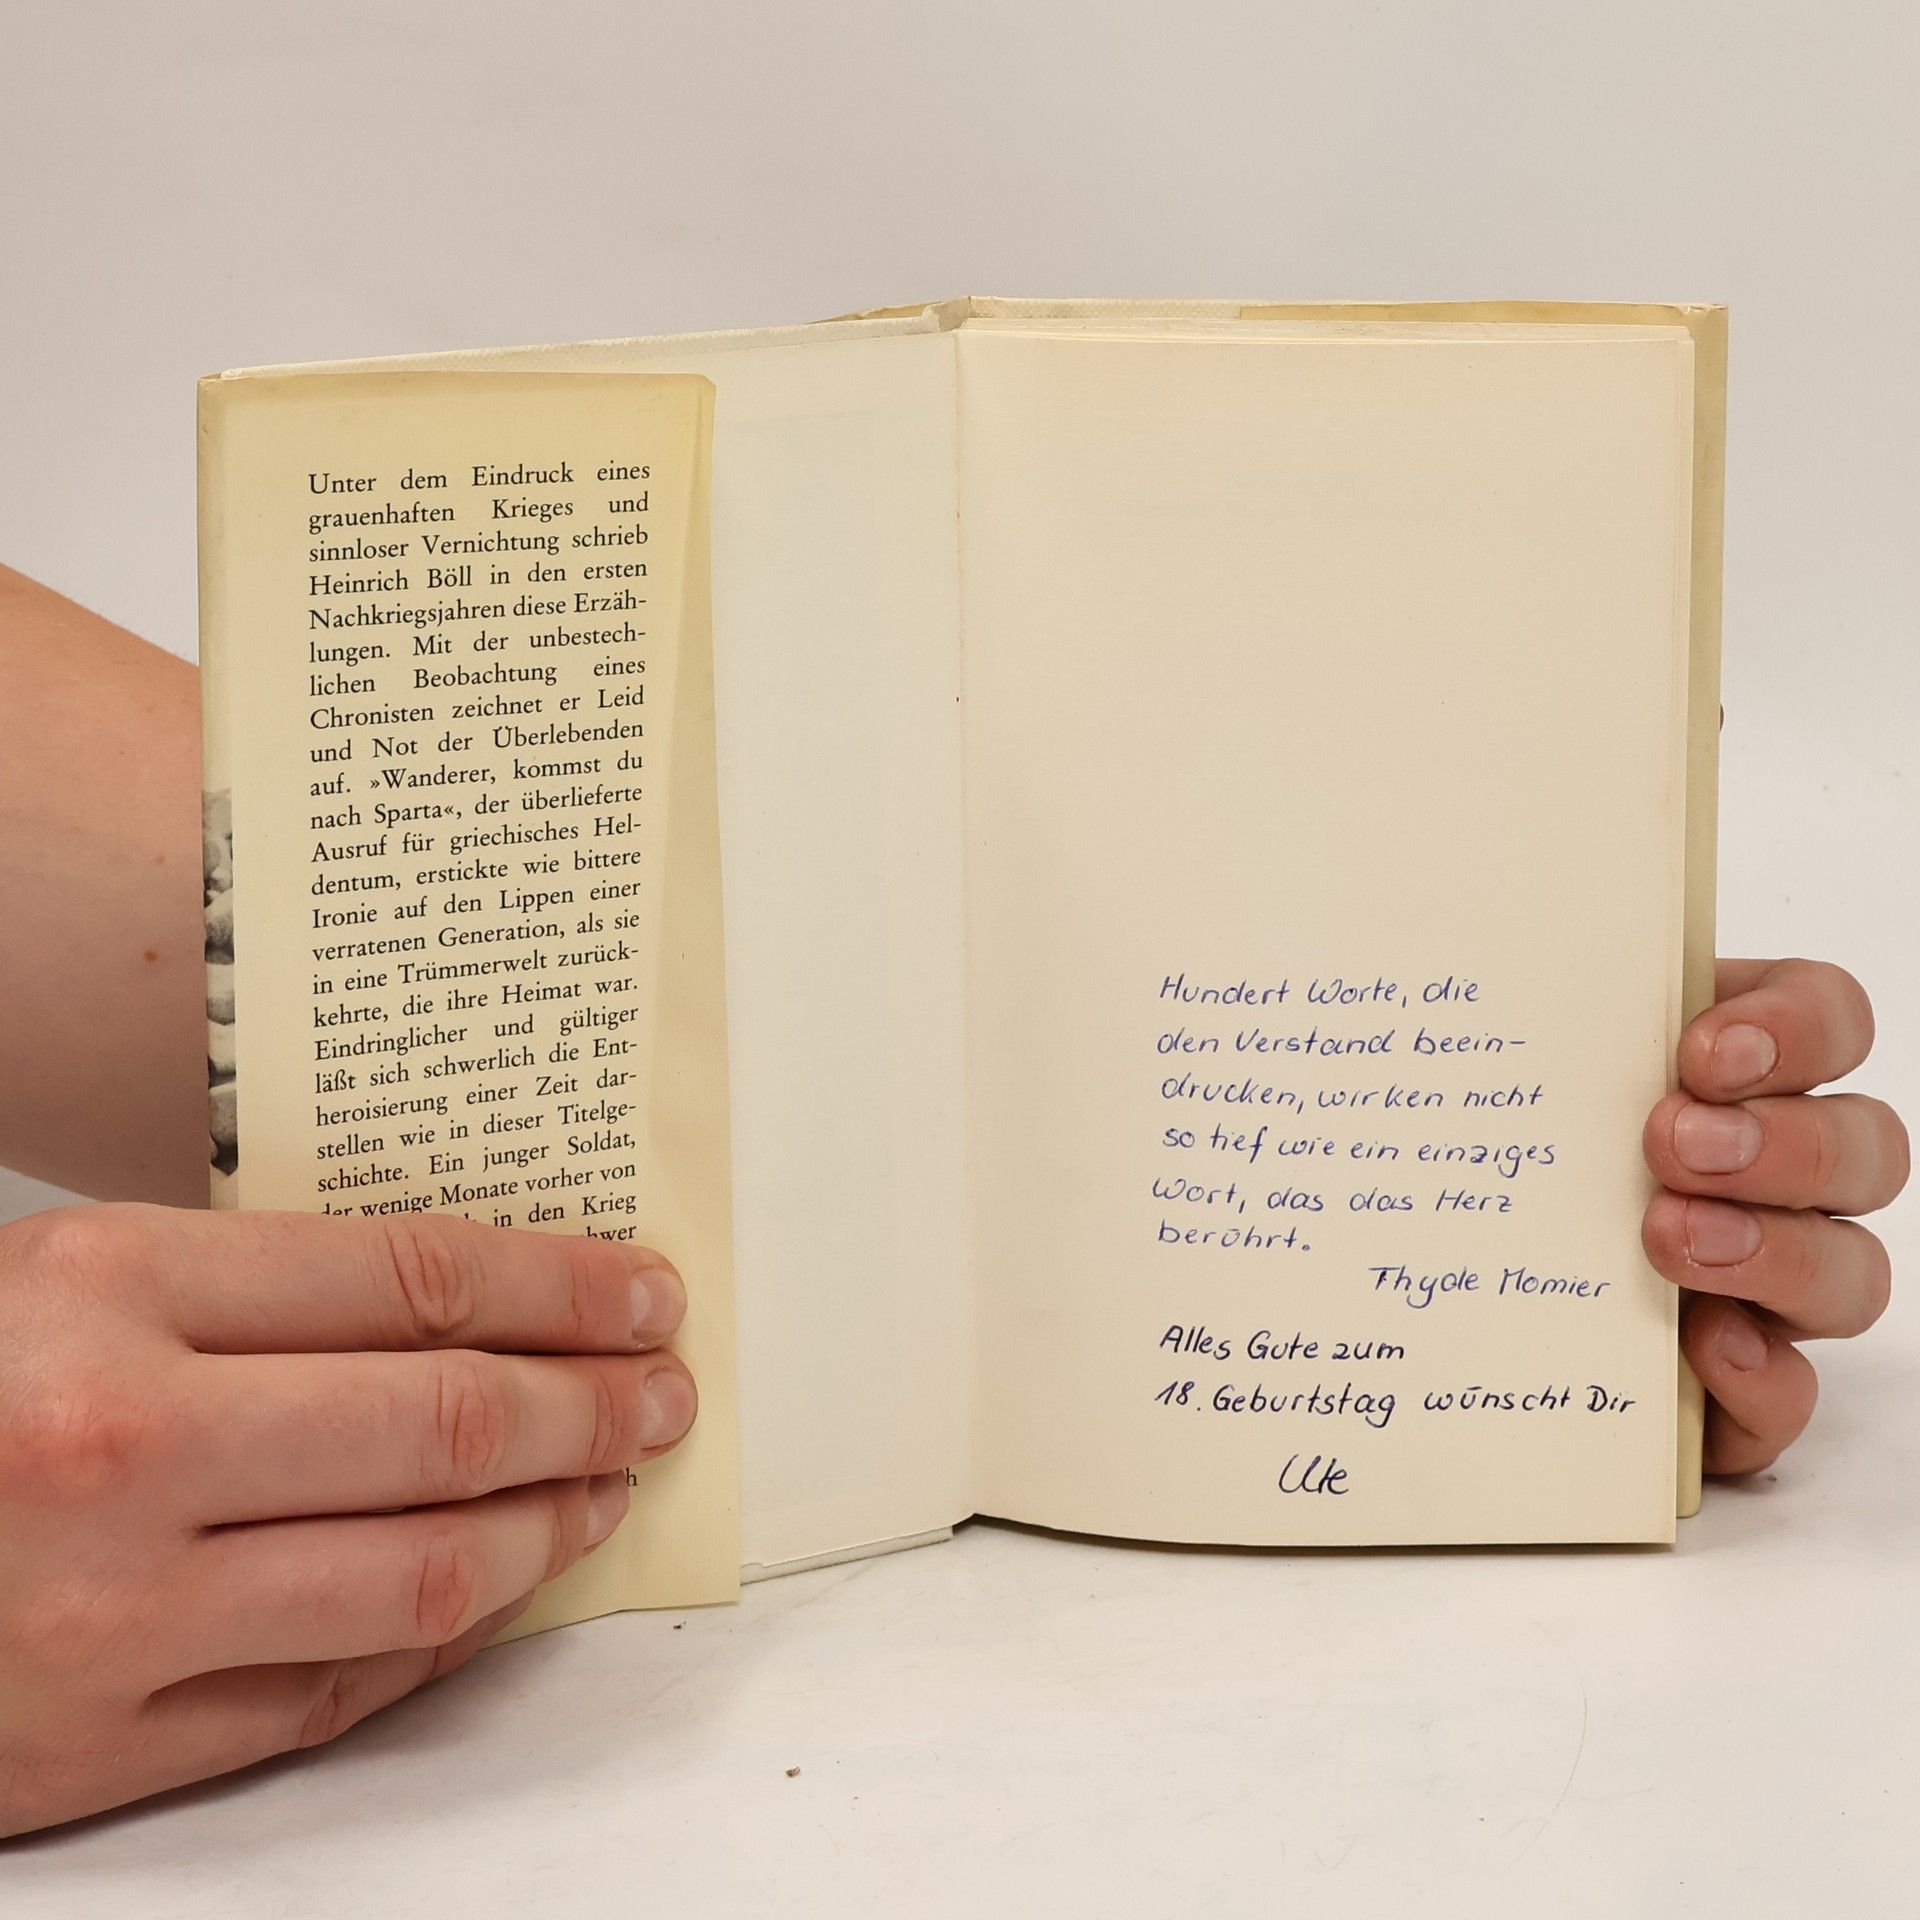 Unter dem Eindruck eines
grauenhaften Krieges und
sinnloser Vernichtung schrieb
Heinrich Böll in den ersten
Nachkriegsjahren diese Erzäh-
lungen. Mit der unbestech-
lichen Beobachtung eines
Chronisten zeichnet er Leid
und Not der Überlebenden
auf. »Wanderer, kommst du
nach Sparta«, der überlieferte
Ausruf für griechisches Hel-
dentum, erstickte wie bittere
Ironie auf den Lippen einer
verratenen Generation, als sie
in eine Trümmerwelt zurück-
kehrte, die ihre Heimat war.
Eindringlicher und gültiger
läßt sich schwerlich die Ent-
heroisierung einer Zeit dar-
stellen wie in dieser Titelge-
schichte. Ein junger Soldat,
der wenige Monate vorher von
in den Krieg
Hundert Worte, die
den Verstand beein-
drucken, wirken nicht
so tief wie ein einziges
Wort, das das Herz
berührt.
Thyde Momier
Alles Gute zum
18. Geburtstag wünscht Dir
Ute